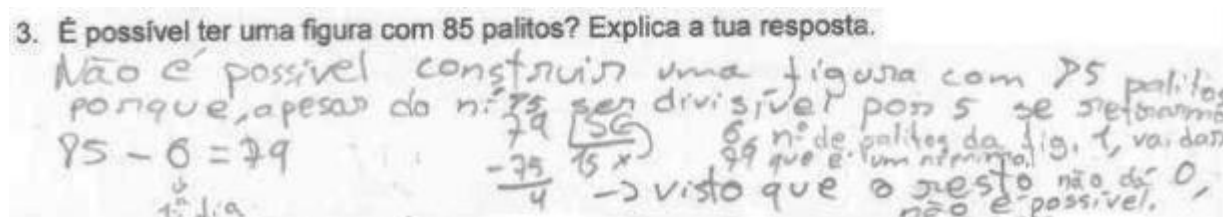 3. É possível ter uma figura com 85 palitos? Explica a tua resposta.
Não é possível construir uma figura com 85 palitos
porque, apesar do nº 85 ser divisível por 5 se retirarmo
85 - 6 = 79
79 6, nº de palitos da fig. 1, vai dar
- 75 15 x 79 que é um
4 -> visto que o resto não dá 0,
não é possível.
1ª fig